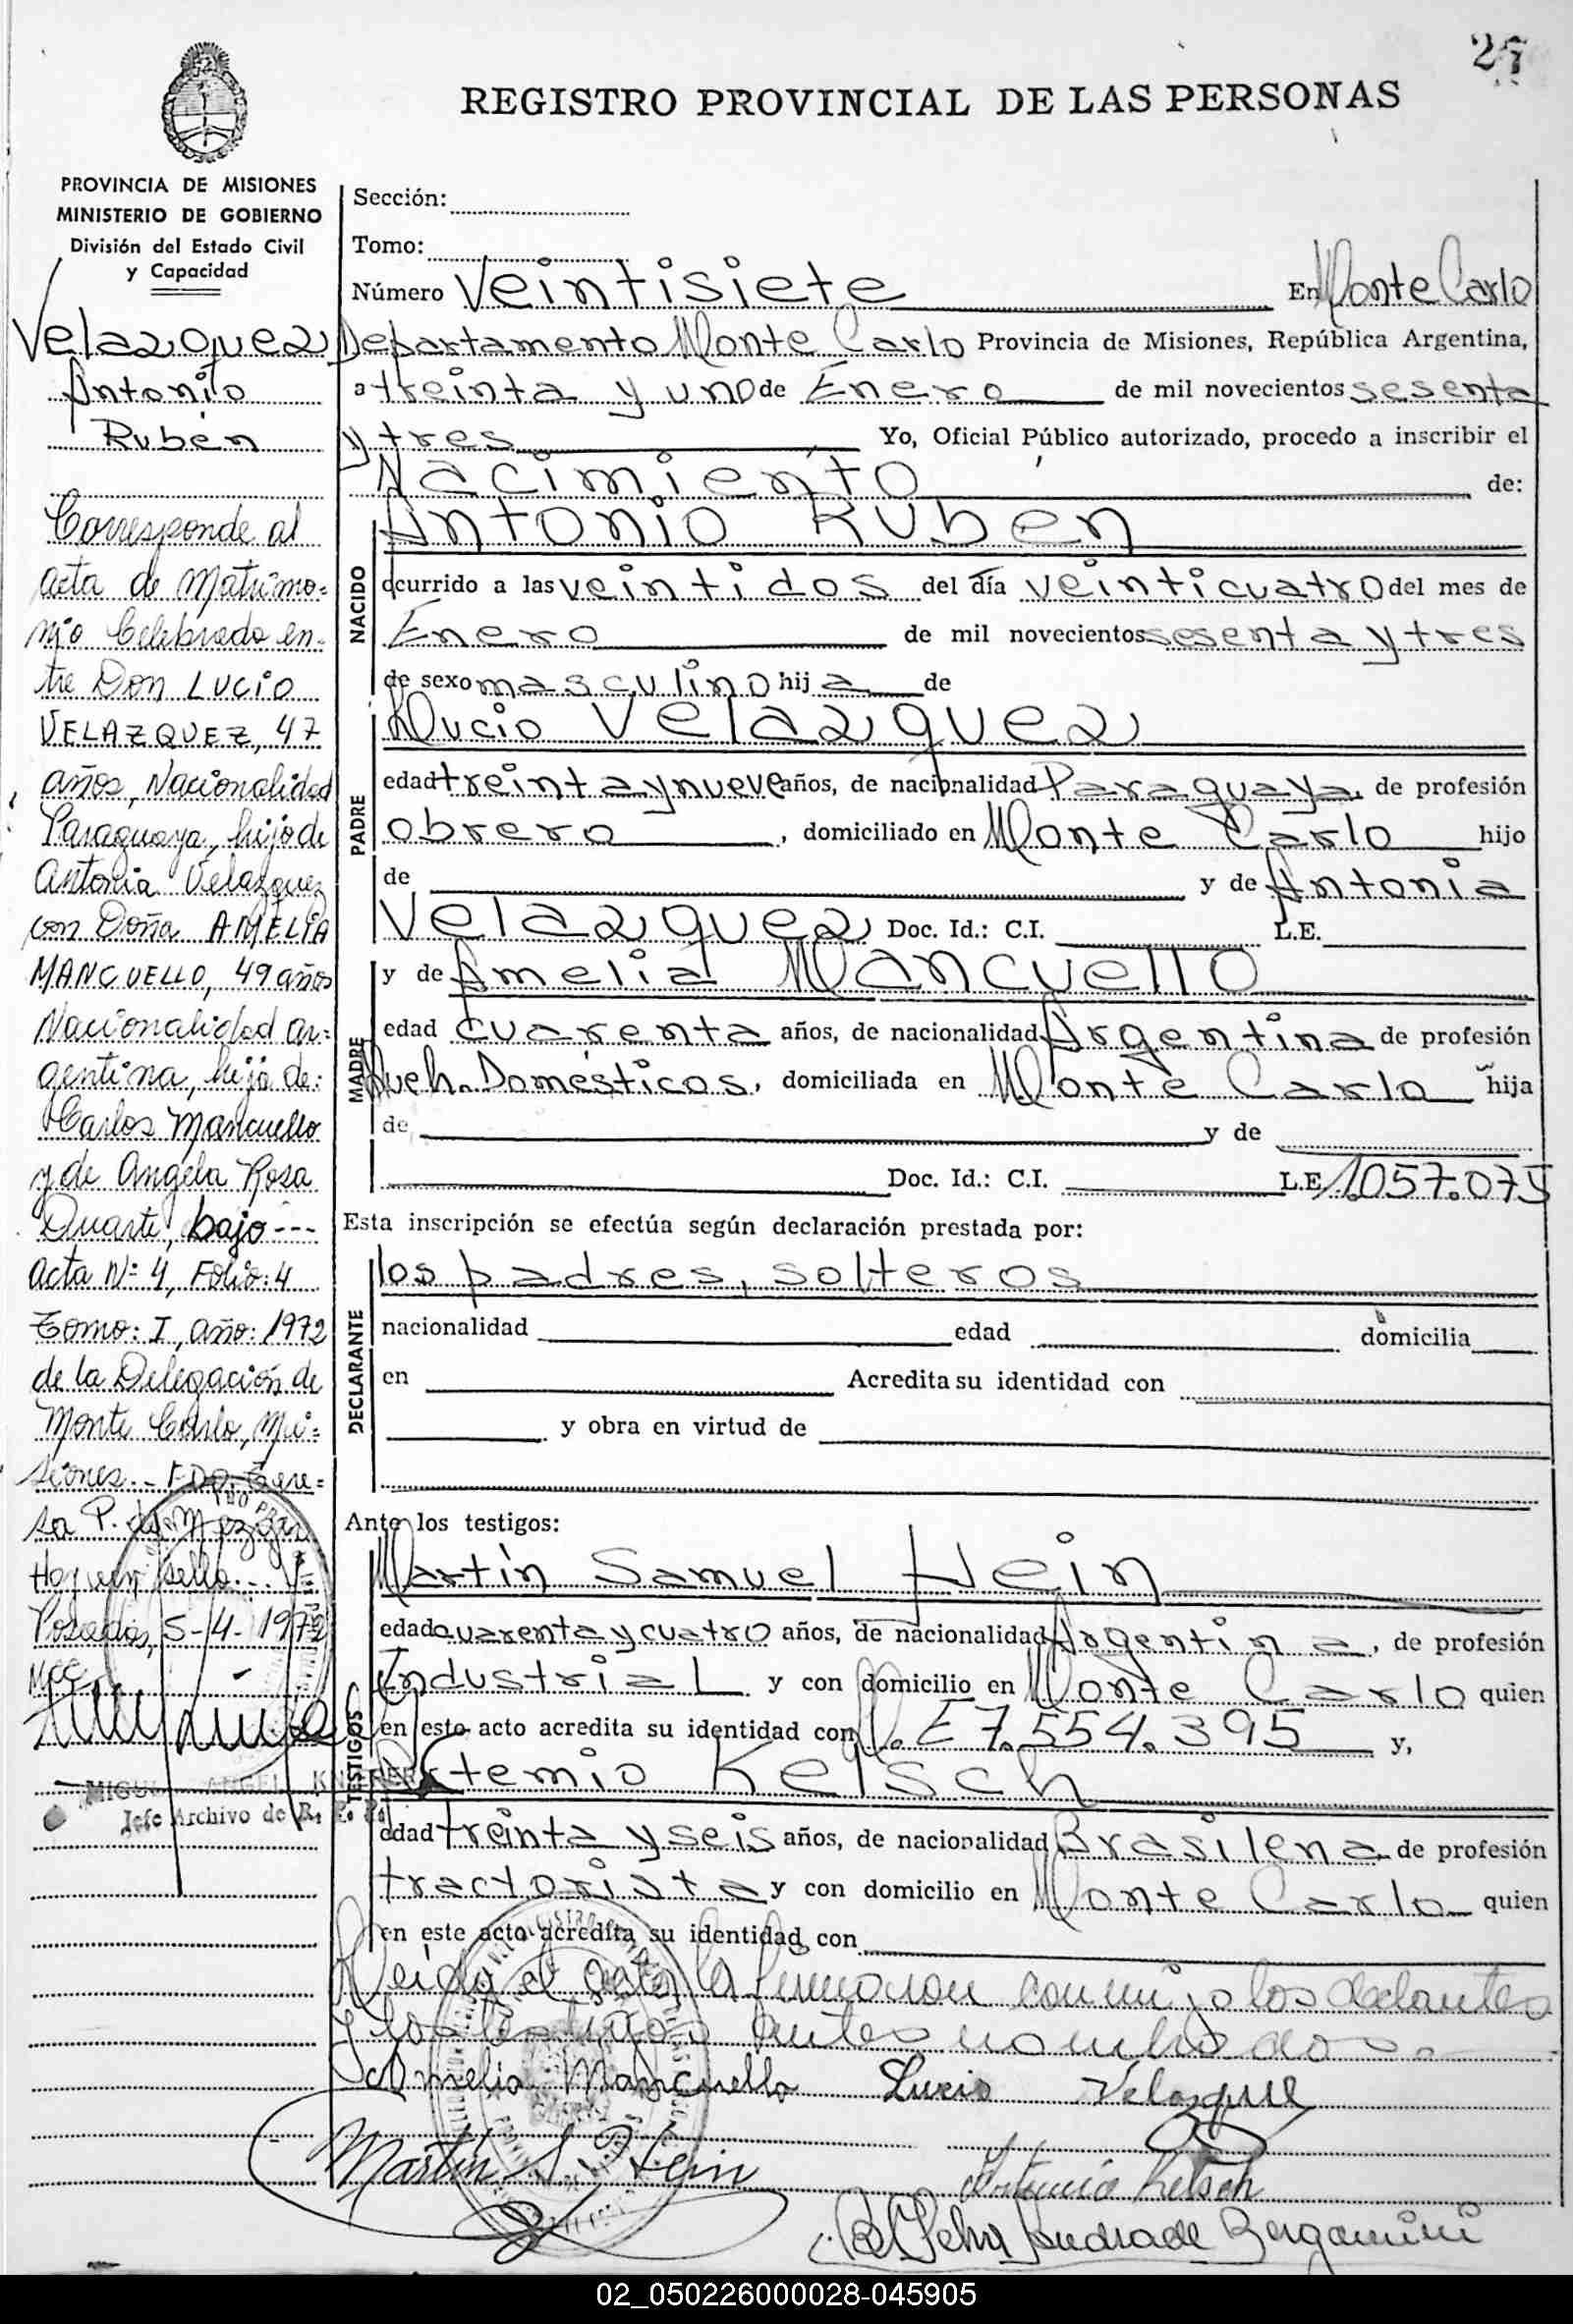 27
REGISTRO PROVINCIAL DE LAS PERSONAS
PROVINCIA DE MISIONES
MINISTERIO DE GOBIERNO
División del Estado Civil
y Capacidad
Velazquez
Antonio
Rubén
Corresponde al
acta de Matrimo=
nio Celebrado en=
tre Don LUCIO
VELAZQUEZ, 47
años, Nacionalidad
Paraguaya, hijo de
Antonia Velazquez
con Doña AMELIA
MANCUELLO, 49 años
Nacionalidad ar=
gentina, hija de:
Carlos Mancuello
y de Angela Rosa
Duarte, bajo ---
acta Nº 4, Folio: 4
Tomo: I, año: 1972
de la Delegación de
Monte Carlo, Mi=
siones.- FDO. Tere=
sa P. de
Hay un sello.-
Posadas, 5-4-1972
MCC
MIGUEL ANGEL
Jefe Archivo de R. P. P.
Sección:
Tomo:
Número Veintisiete En Monte Carlo
Departamento Monte Carlo Provincia de Misiones, República Argentina,
a treinta y uno de Enero de mil novecientos sesenta
y tres Yo, Oficial Público autorizado, procedo a inscribir el
Nacimiento de:
NACIDO
Antonio Ruben
ocurrido a las veintidos del día veinticuatro del mes de
Enero de mil novecientos sesenta y tres
de sexo masculino hij a de
PADRE
Lucio Velazquez
edad treinta y nueve años, de nacionalidad Paraguaya, de profesión
obrero, domiciliado en Monte Carlo hijo
de y de Antonia
Velazquez Doc. Id.: C.I. L.E.
MADRE
y de Amelia Mancuello
edad cuarenta años, de nacionalidad Argentina de profesión
Queh. Domésticos, domiciliada en Monte Carlo hija
de y de
Doc. Id.: C.I. L.E. 1.057.075
Esta inscripción se efectúa según declaración prestada por:
DECLARANTE
los padres, solteros
nacionalidad edad domicilia
en Acredita su identidad con
y obra en virtud de
Ante los testigos:
TESTIGOS
Martín Samuel Hein
edad cuarenta y cuatro años, de nacionalidad Argentina, de profesión
Industrial y con domicilio en Monte Carlo quien
en este acto acredita su identidad con L.E 7.554.395 y,
Artemio Kelsch
edad treinta y seis años, de nacionalidad Brasilena de profesión
tractorista y con domicilio en Monte Carlo quien
en este acto acredita su identidad con
Leída el acta la firmaron conmigo los declantes
y los testigos antes nombrados.
Amelia Mancuello Lucio Velazque
Martín S. Hein
Artemio Kelsch
Selva Andrade Bergamini
02_050226000028-045905